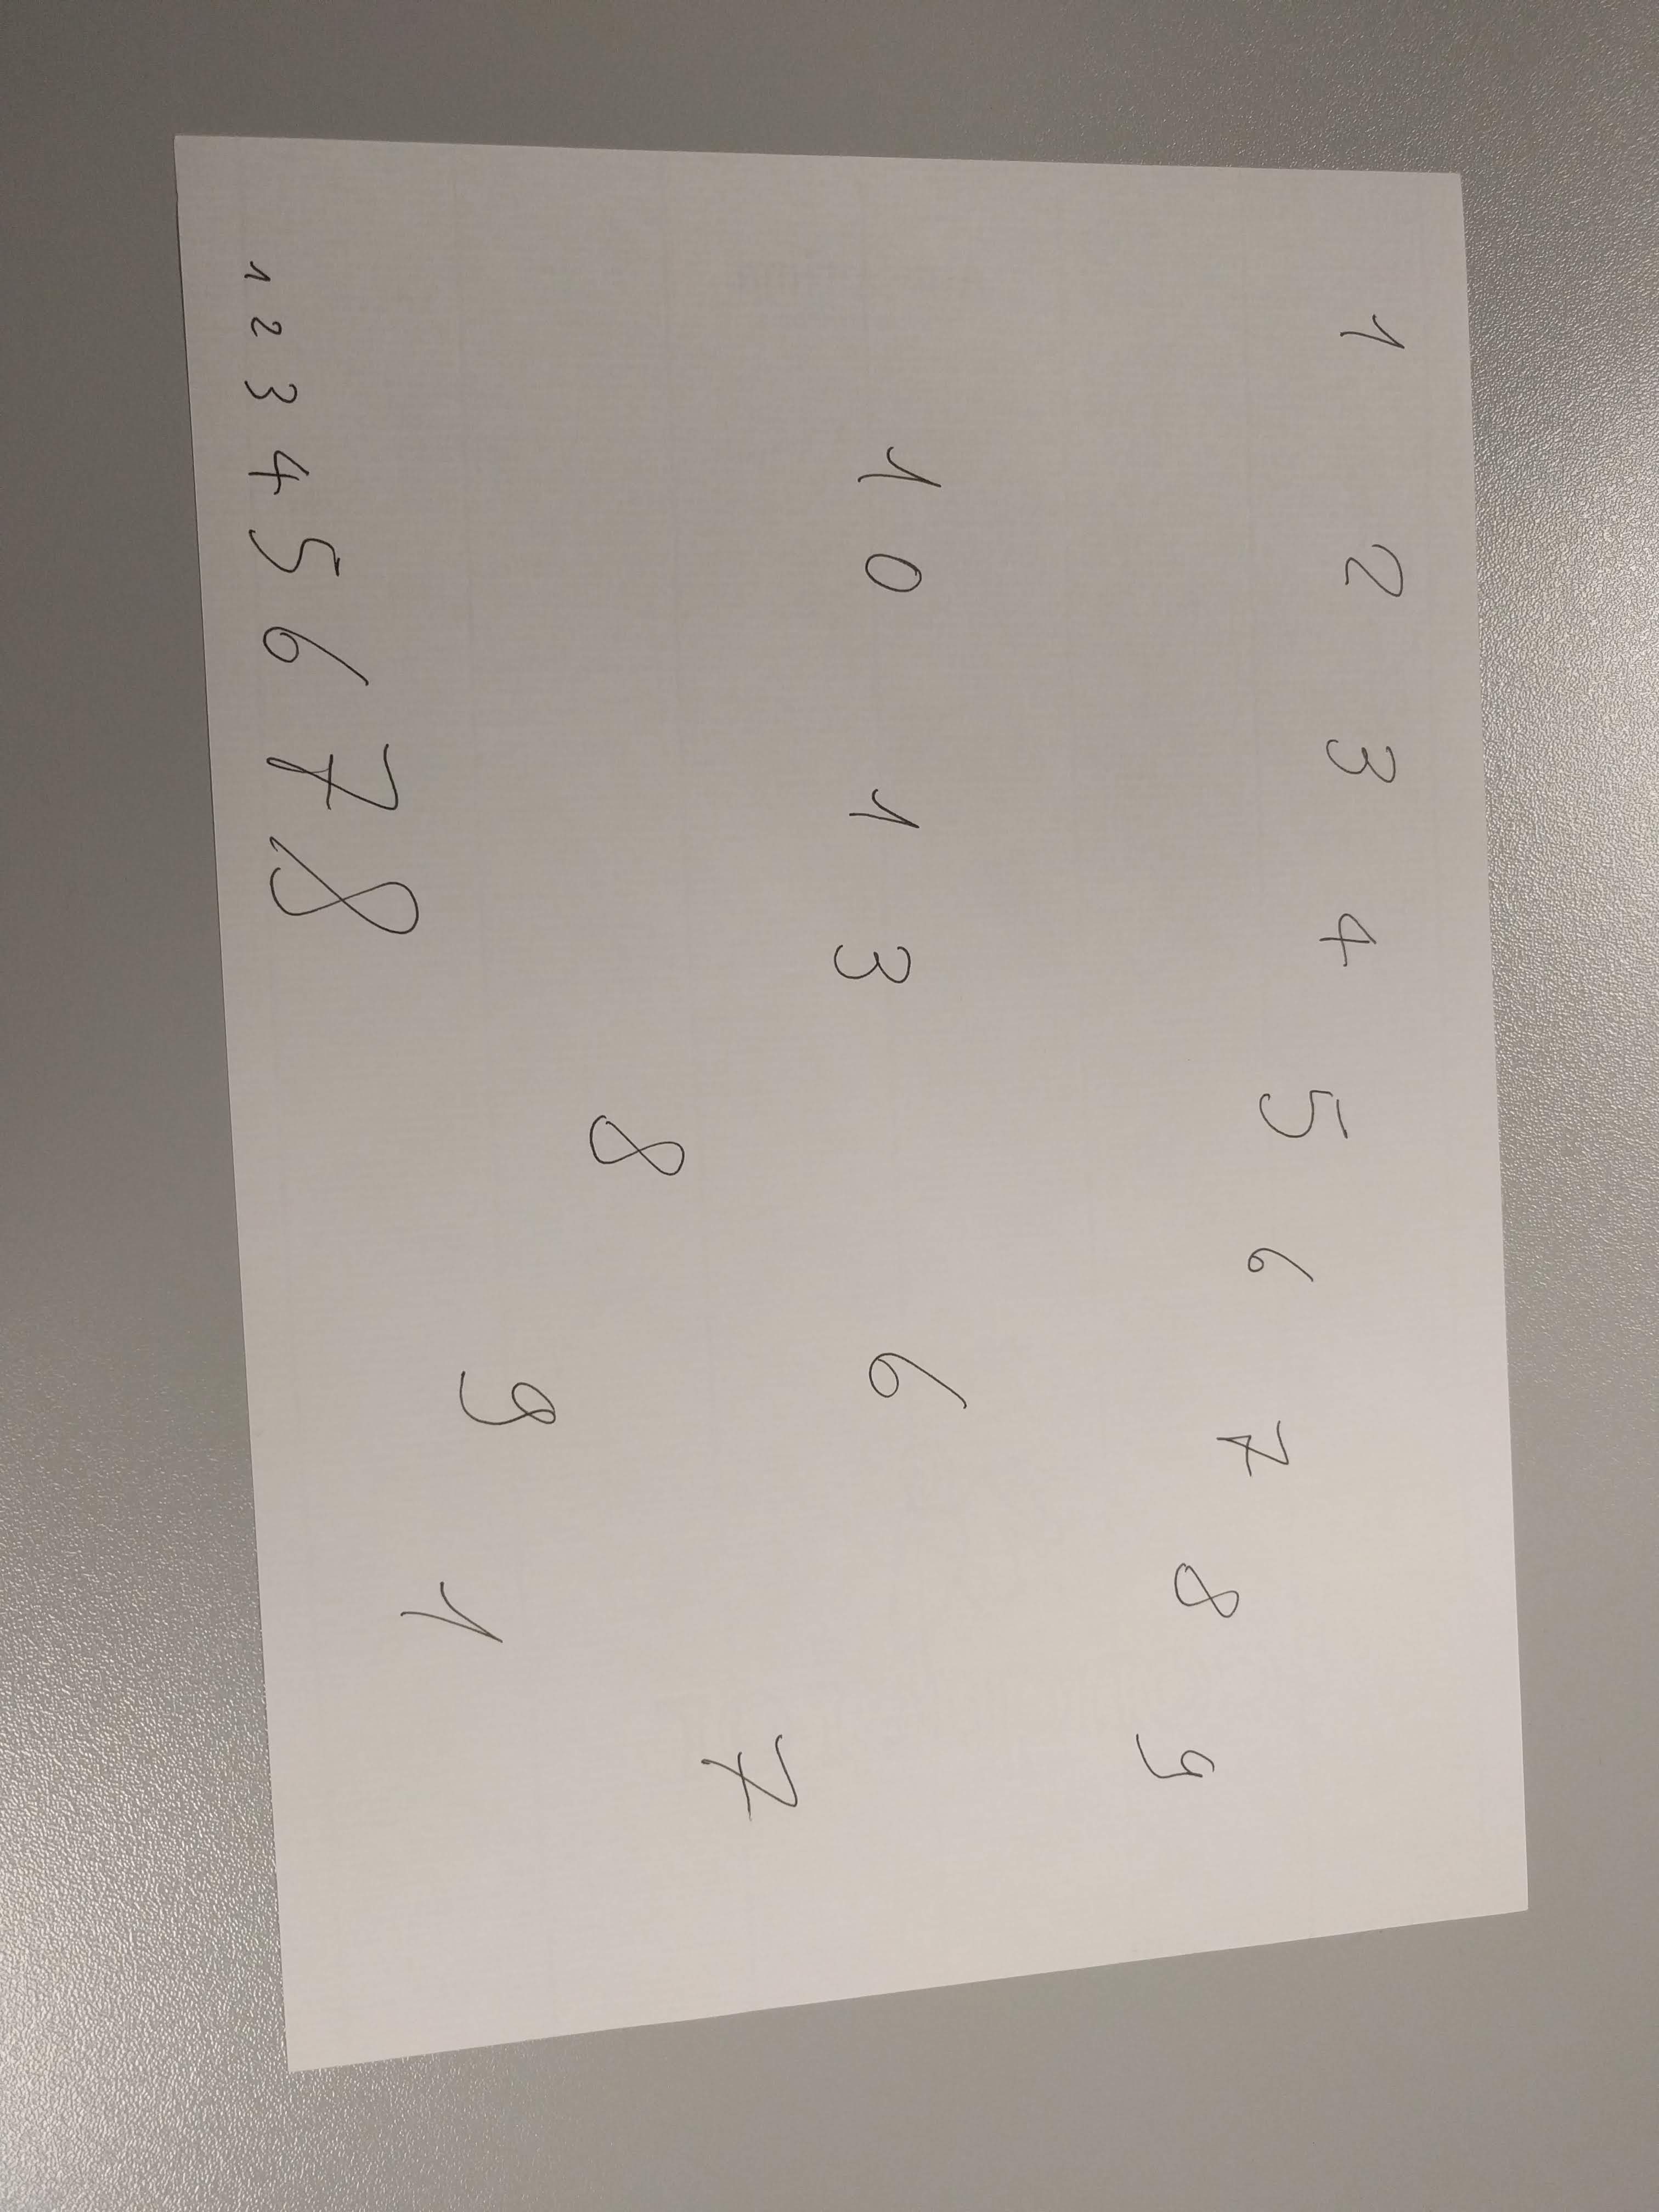 1 2 3 4 5 6 7 8 9
1 0 1 3 6
8 7
9 1
1 2 3 4 5 6 7 8